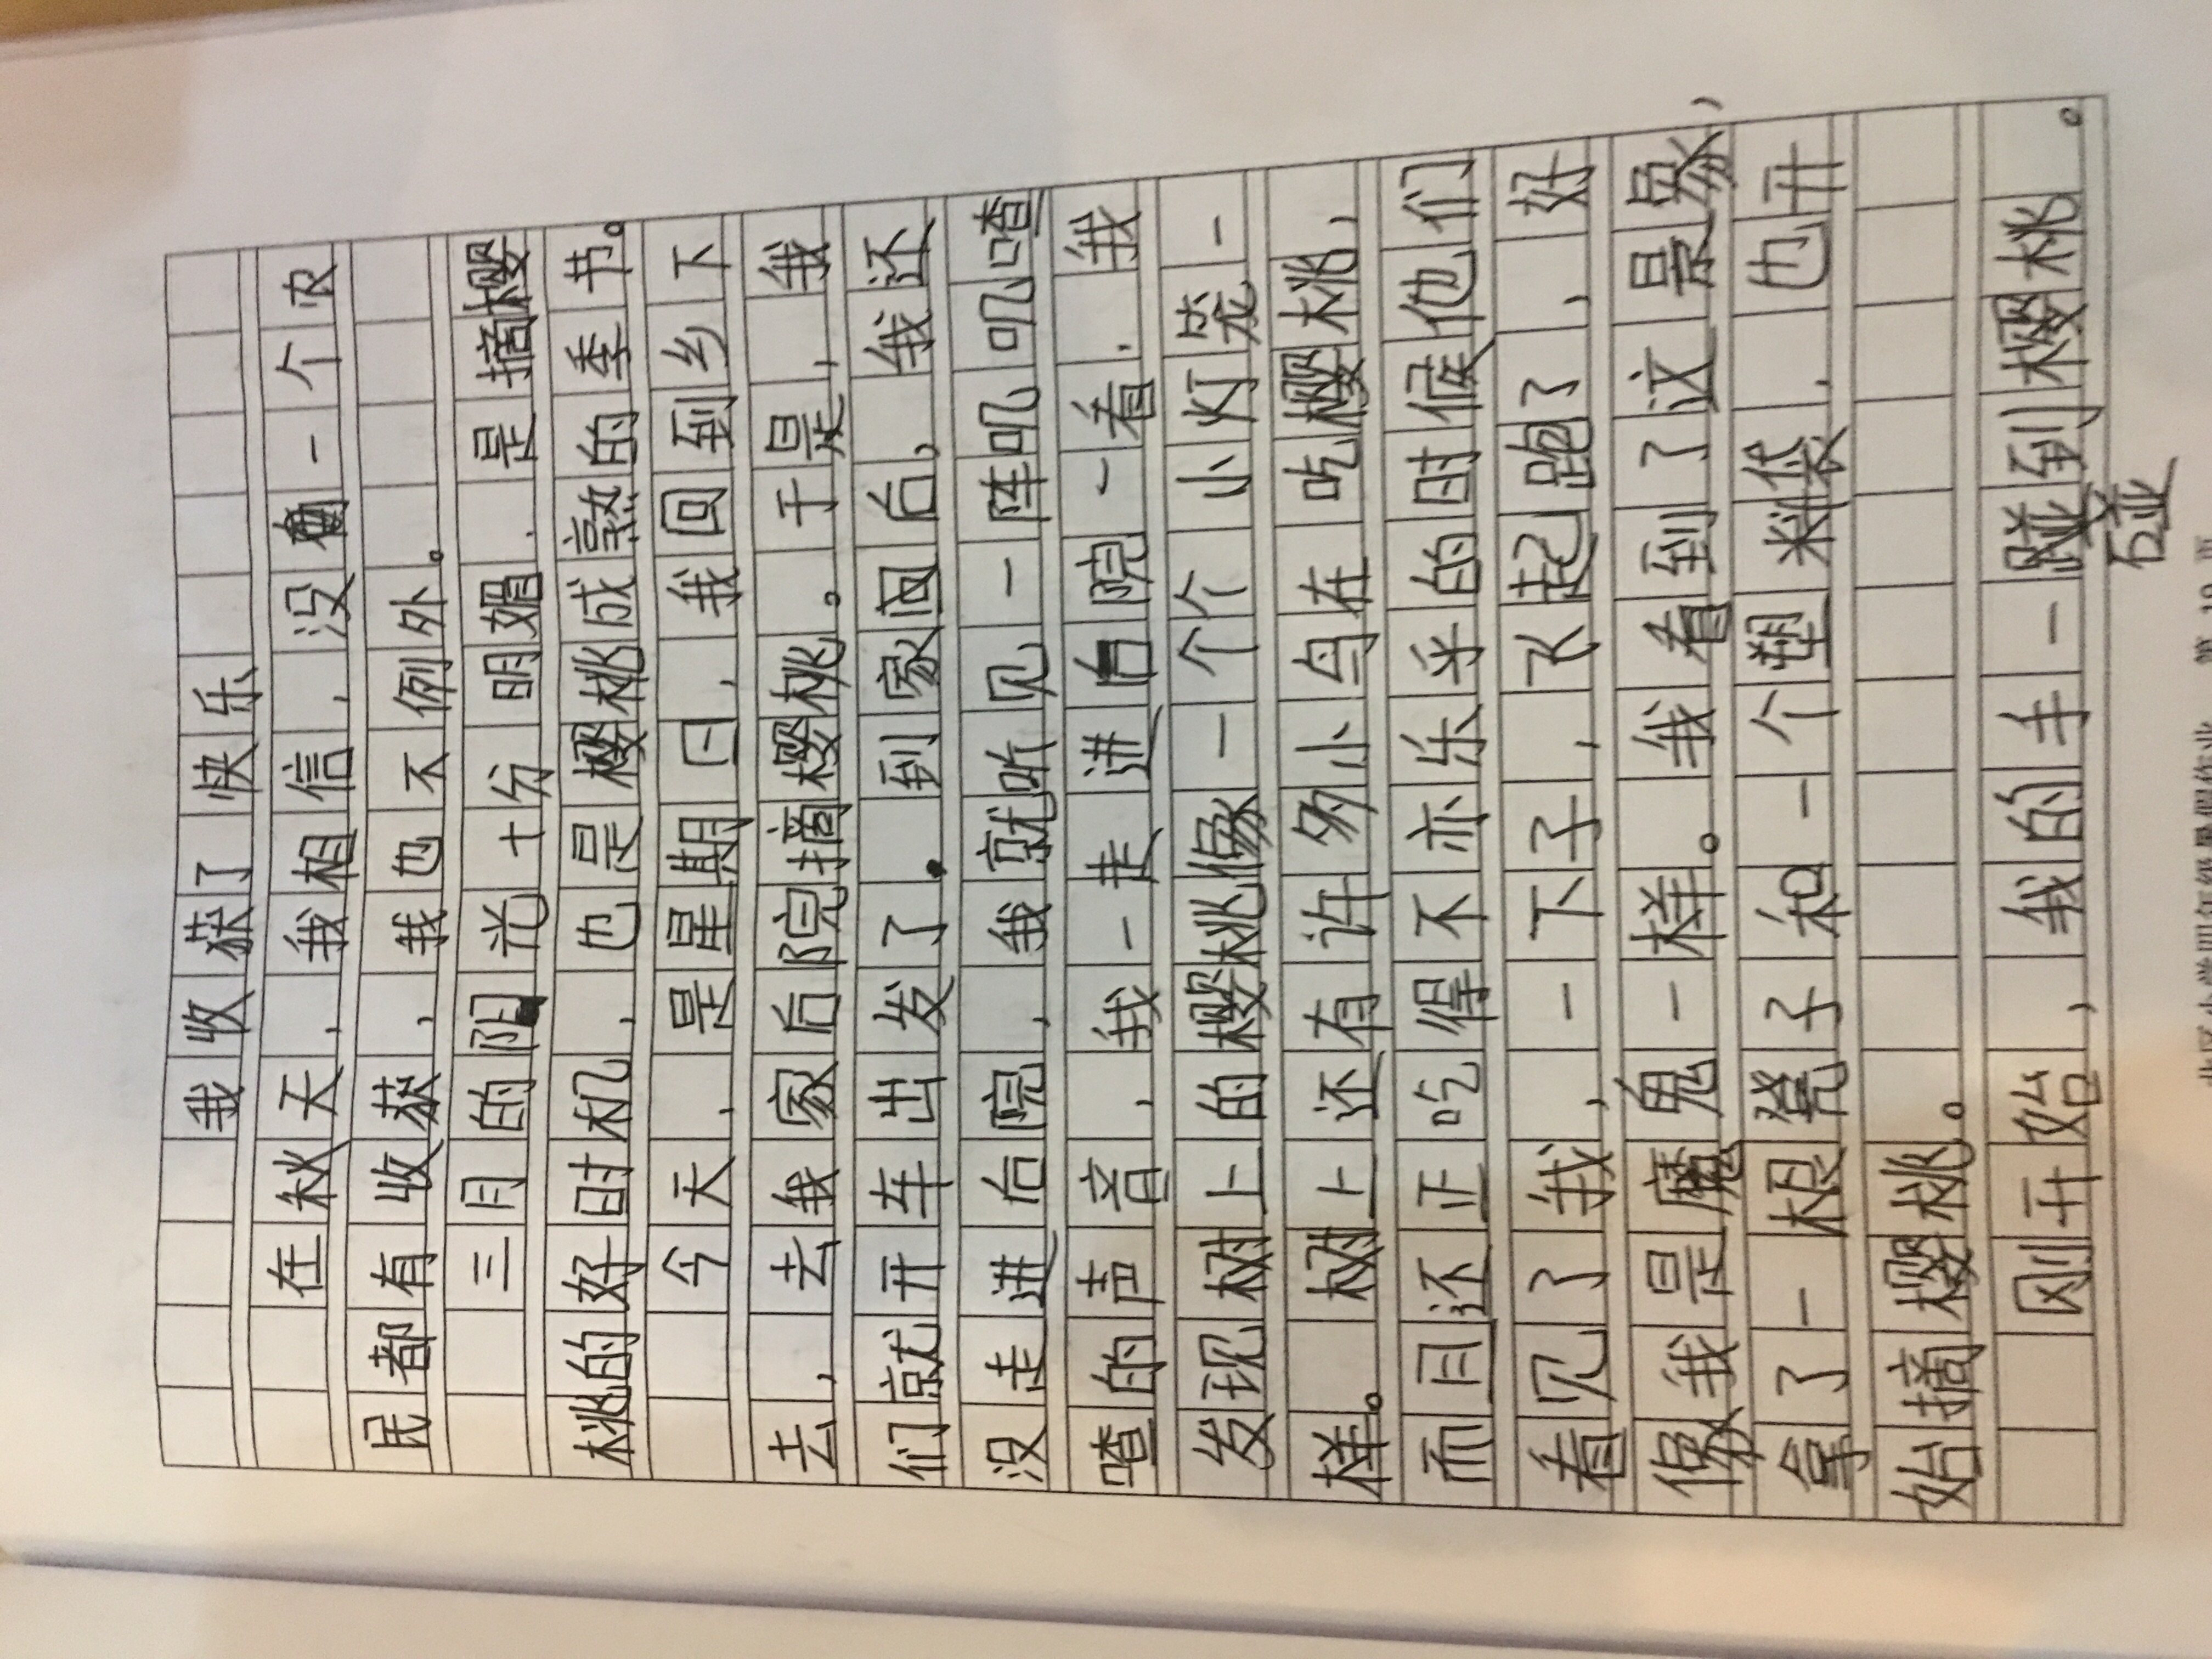 我收获了快乐
在秋天,我相信,没有一个农
民都有收获,我也不例外。
三月的阳光十分明媚,是摘樱
桃的好时机,也是樱桃成熟的季节。
今天,是星期日,我回到乡下
去,去我家后院摘樱桃。于是,我
们就开车出发了。到家闾后,我还
没走进后院,我就听见一阵叽叽喳
喳的声音,我一走进后院一看,我
发现树上的樱桃像一个个小灯笼一
样。树上还有许多小鸟在吃樱桃,
而且还正吃得不亦乐乎的时候他们
看见了我,一下子,飞起跑了,好
像我是魔鬼一样。我看到了这景象,
拿了一根凳子和一个塑料袋,也开
始摘樱桃。
刚开始,我的手一碰到樱桃。